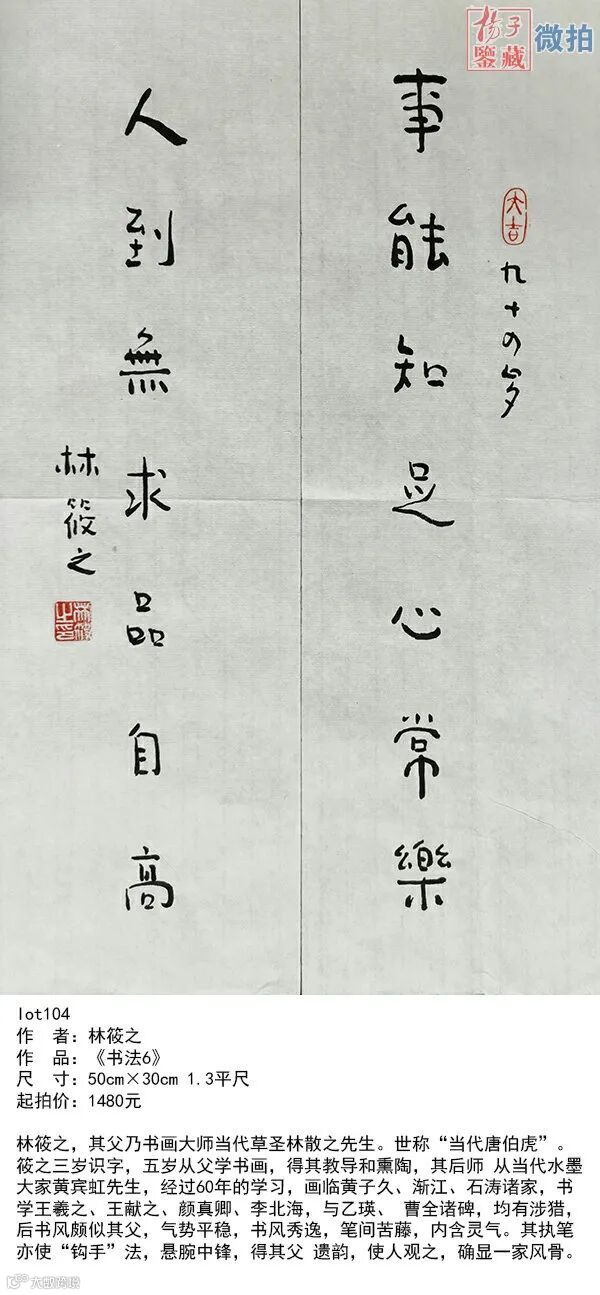 杨子
鑒藏
微拍
大吉
九十四岁
事能知足心常樂
人到無求品自高
林筱之
林筱之印
lot104
作 者：林筱之
作 品：《书法6》
尺 寸：50cm×30cm 1.3平尺
起拍价：1480元
林筱之，其父乃书画大师当代草圣林散之先生。世称“当代唐伯虎”。
筱之三岁识字，五岁从父学书画，得其教导和熏陶，其后师 从当代水墨
大家黄宾虹先生，经过60年的学习，画临黄子久、渐江、石涛诸家，书
学王羲之、王献之、颜真卿、李北海，与乙瑛、 曹全诸碑，均有涉猎，
后书风颇似其父，气势平稳，书风秀逸，笔间苦藤，内含灵气。其执笔
亦使“钩手”法，悬腕中锋，得其父 遗韵，使人观之，确显一家风骨。